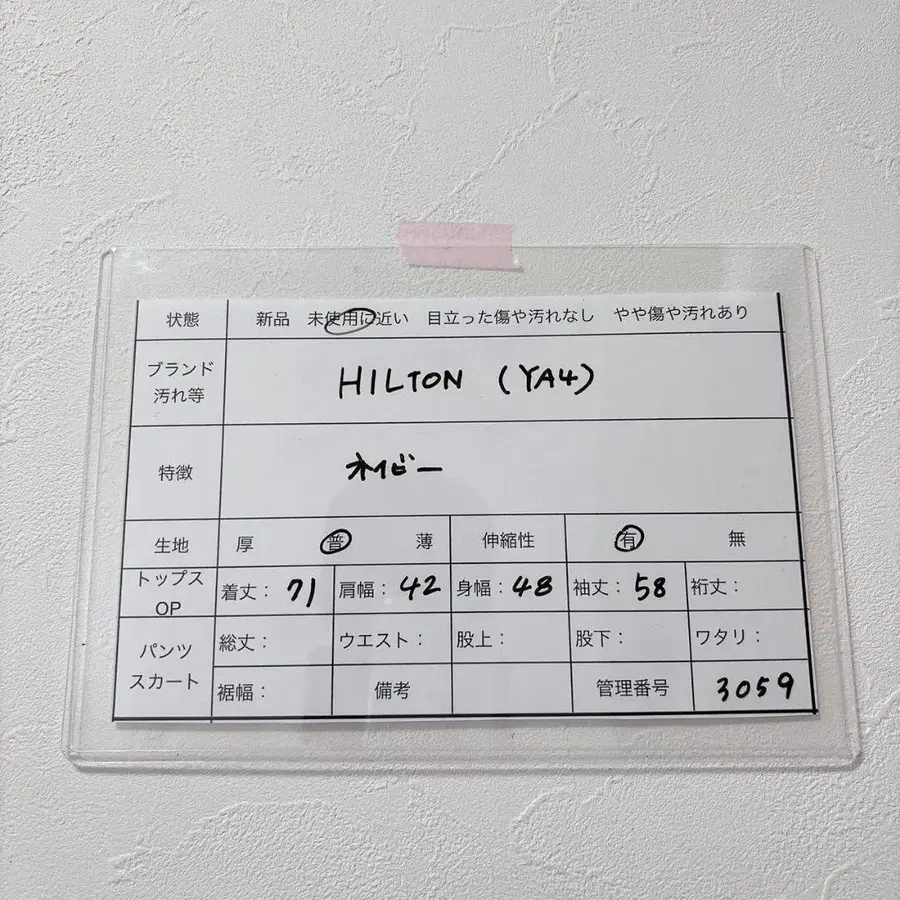 状態 新品 未使用に近い 目立った傷や汚れなし やや傷や汚れあり
ブランド
汚れ等
HILTON (YA4)
特徴 ネイビー
生地 厚 普 薄 伸縮性 有 無
トップス
OP
着丈: 71 肩幅: 42 身幅: 48 袖丈: 58 裄丈:
パンツ
スカート
総丈: ウエスト: 股上: 股下: ワタリ:
裾幅: 備考 管理番号 3059